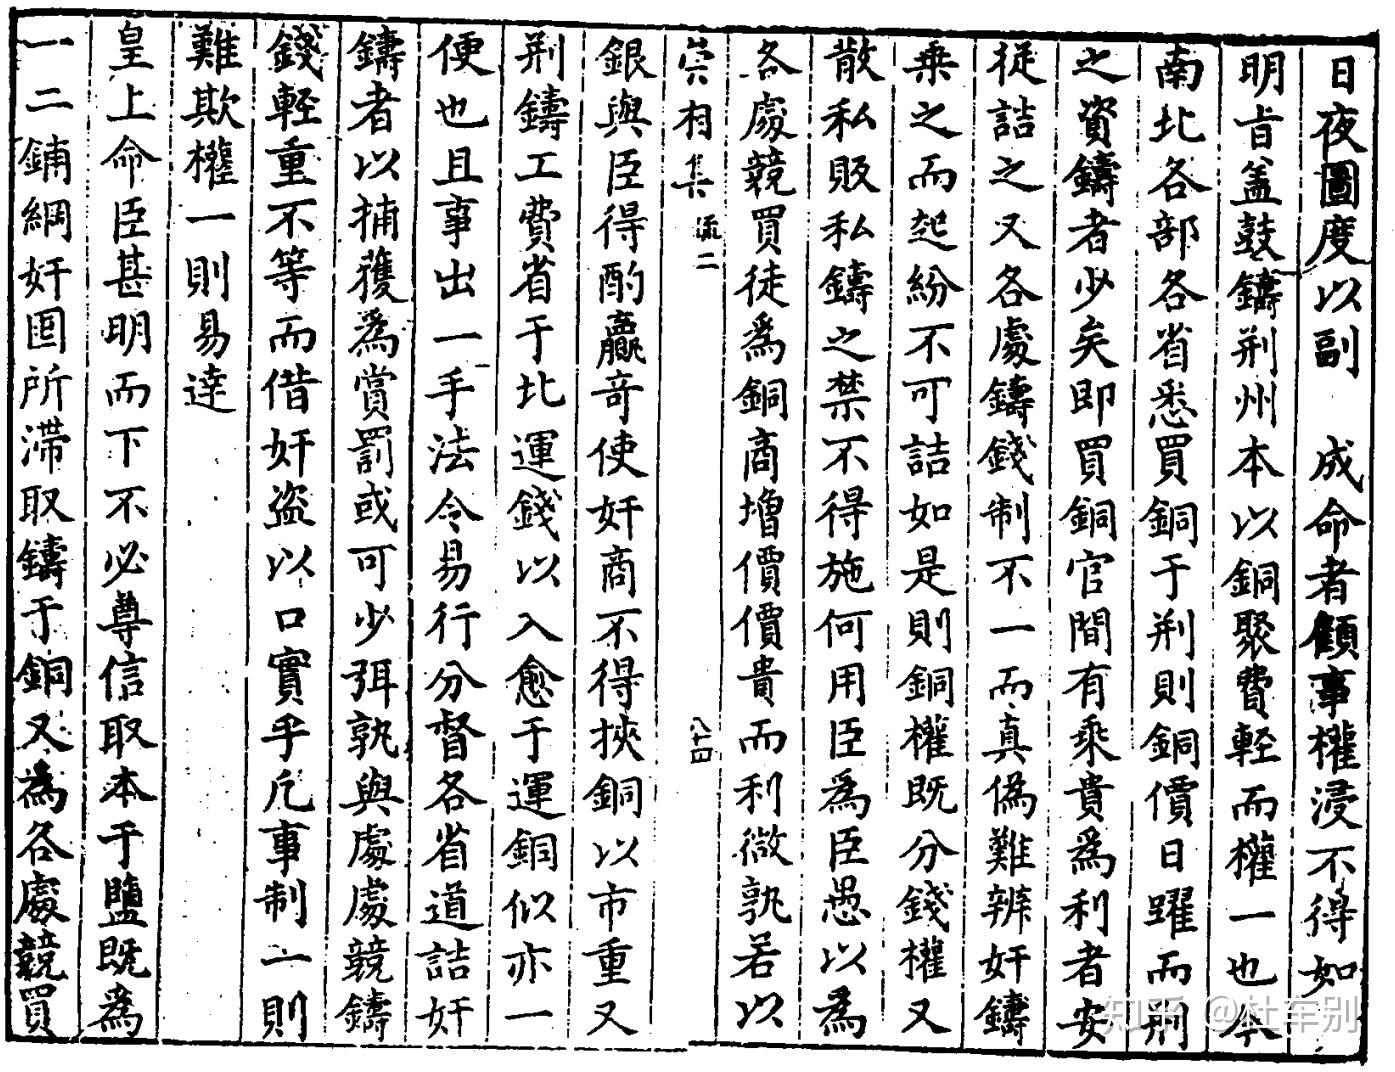 日夜圖度以副　成命者顧事權浸不得如
明旨盖鼓鑄荆州本以銅聚費輕而權一也今
南北各部各省悉買銅于荆則銅價日躍而荆
之資鑄者少矣即買銅官間有乘貴為利者安
従詰之又各處鑄錢制不一而真偽難辨奸鑄
乗之而起紛不可詰如是則銅權既分錢權又
散私販私鑄之禁不得施何用臣為臣愚以為
各處競買徒為銅商增價價貴而利微孰若以
崇相集 疏二 八十四
銀與臣得酌贏竒使奸商不得挾銅以市重又
荆鑄工費省于北運錢以入愈于運銅似亦一
便也且事出一手法令易行分督各省道詰奸
鑄者以捕獲為賞罰或可少弭孰與處處競鑄
錢輕重不等而借奸盜以口實乎凢事制二則
難欺權一則易達
皇上命臣甚明而下不必尊信取本于鹽既為
一二鋪綱奸囤所滞取鑄于銅又為各處競買
知乎 @杜车别